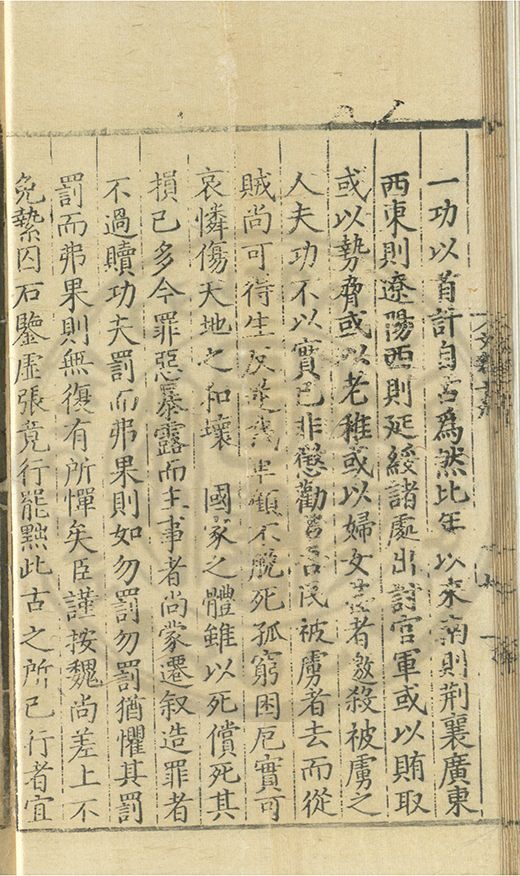 一功以首計自古爲然比年以來南則荆襄廣東
西東則遼陽西則延綏諸處出討官軍或以賄取
或以勢脅或以老稚或以婦女甚者殺被虜之
人夫功不以實已非懲勸若吾民被虜者去而從
賊尚可得生反顧不脫死孤窮困厄實可
哀憐傷天地之和壞　國家之體雖以死償死其
損已多今罪惡暴露而主事者尚蒙遷叙造罪者
不過贖功夫罰而弗果則如勿罰勿罰猶懼其罰
罰而弗果則無復有所憚矣臣謹按魏尚差上不
免縶囚石鑒虛張竟行罷黜此古之所已行者宜